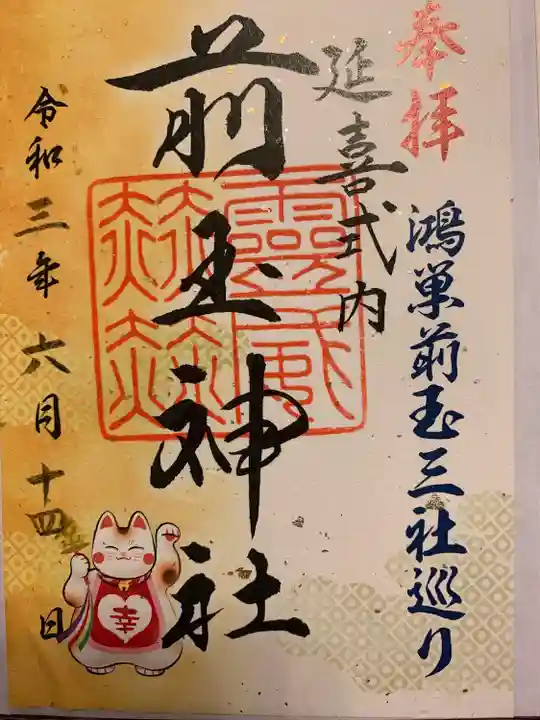 奉拝
鴻巣前玉三社巡り
延喜式内
前玉神社
靈威赫赫
令和三年六月十四日
幸